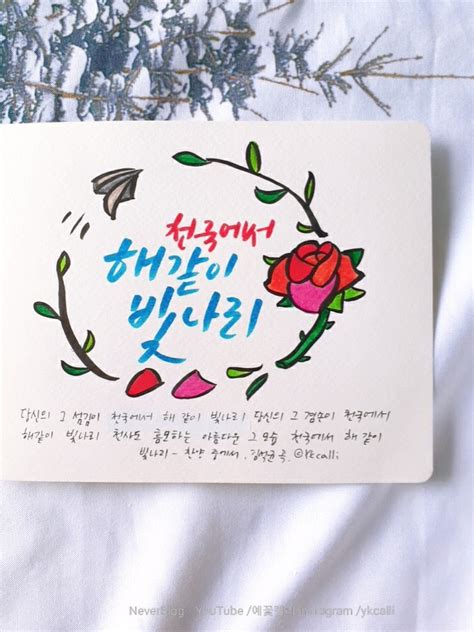 천국에서
해같이
빛나리
당신의 그 섬김이 천국에서 해 같이 빛나리 당신의 그 겸손이 천국에서
해같이 빛나리 천사도 흠모하는 아름다운 그 모습 천국에서 해 같이
빛나리 - 찬양 중에서. 김석균 곡. ©YKcalli
YouTube /예꽃 /ykcalli